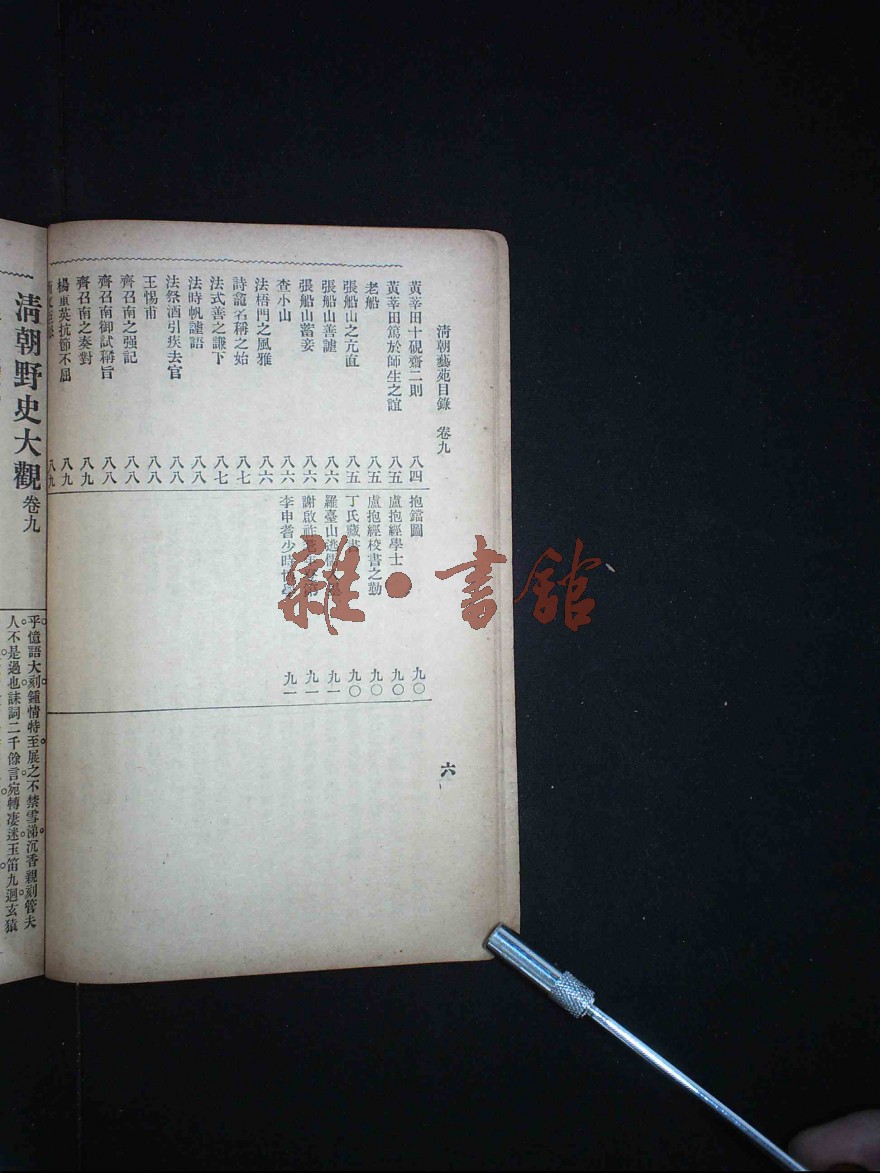 清朝藝苑目錄 卷九
六
黃莘田十硯齋二則 八四
黃莘田篤於師生之誼 八五
老船 八五
張船山之亢直 八五
張船山善謔 八六
張船山蓄妾 八六
查小山 八六
法梧門之風雅 八六
詩龕名稱之始 八七
法式善之謙下 八七
法時帆謔語 八八
法祭酒引疾去官 八八
王惕甫 八八
齊召南之强記 八八
齊召南御試稱旨 八八
齊召南之奏對 八九
楊重英抗節不屈 八九
八九
抱鐺圖 九〇
盧抱經學士 九〇
盧抱經校書之勤 九〇
丁氏藏書 九〇
羅臺山逃 九一
謝啟 九一
李申耆少時 九一
清朝野史大觀 卷九
乎憶語大刻鍾情特至展之不禁雪涕沉香親刻管夫
人不是過也誄詞二千餘言宛轉凄迷玉笛九迴玄猿
雜·書館